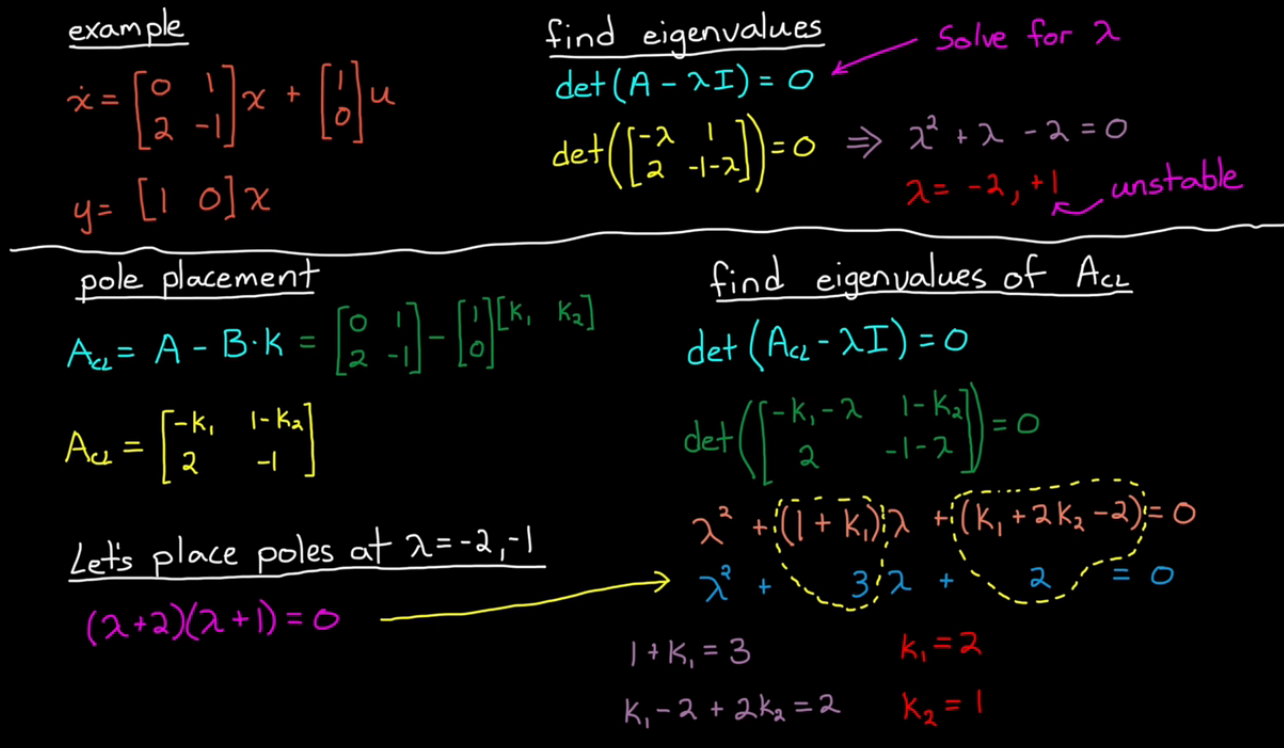 example
ẋ = [0 1; 2 -1] x + [1; 0] u
y = [1 0] x
find eigenvalues
det(A - λI) = 0
Solve for λ
det([-λ 1; 2 -1-λ]) = 0 ⇒ λ² + λ - 2 = 0
λ = -2, +1
unstable
pole placement
A_CL = A - B·K = [0 1; 2 -1] - [1; 0] [k₁ k₂]
A_CL = [-k₁ 1-k₂; 2 -1]
Let's place poles at λ = -2, -1
(λ+2)(λ+1) = 0
find eigenvalues of A_CL
det(A_CL - λI) = 0
det([-k₁-λ 1-k₂; 2 -1-λ]) = 0
λ² + (1 + k₁)λ + (k₁ + 2k₂ - 2) = 0
λ² + 3λ + 2 = 0
1 + k₁ = 3
k₁ = 2
k₁ - 2 + 2k₂ = 2
k₂ = 1